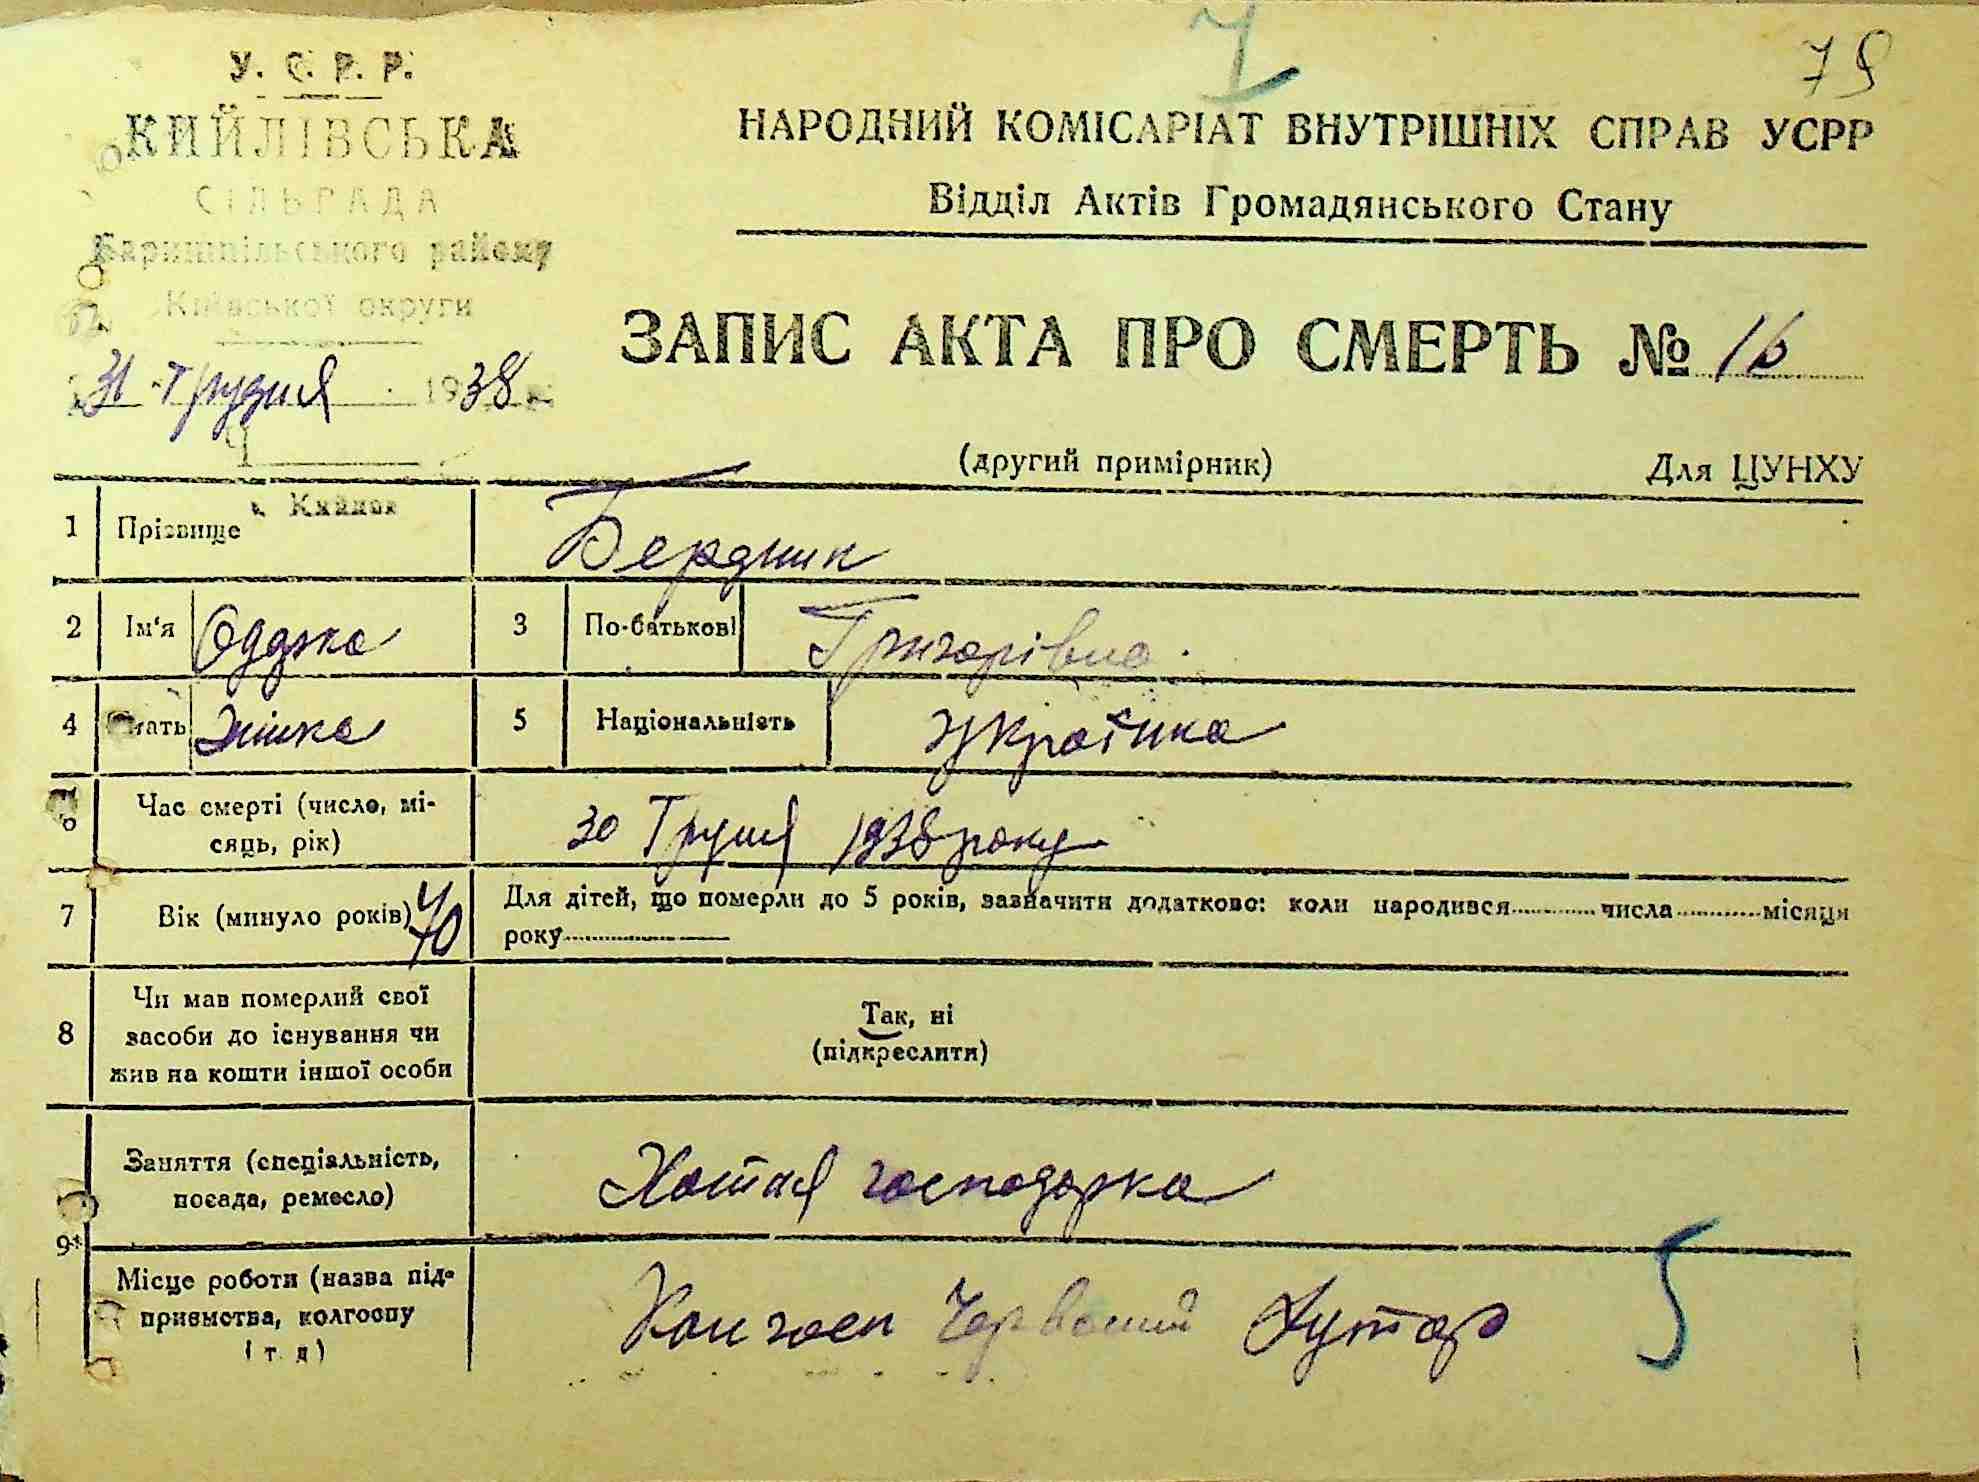 7
79
У. С. Р. Р.
КИЙЛІВСЬКА
СІЛЬРАДА
Баришпільського району
Київської округи
31 Грудня 1938
НАРОДНИЙ КОМІСАРІАТ ВНУТРІШНІХ СПРАВ УСРР
Відділ Актів Громадянського Стану
ЗАПИС АКТА ПРО СМЕРТЬ № 16
(другий примірник) Для ЦУНХУ
1 Прізвище Бердник
2 Ім'я Одарка 3 По-батькові Григорівна
4 Стать Жінка 5 Національність Українка
6 Час смерті (число, мі-
сяць, рік) 30 Грудня 1938 року
7 Вік (минуло років) 70 Для дітей, що померли до 5 років, зазначити додатково: коли народився числа місяця
року
8 Чи мав померлий свої
засоби до існування чи
жив на кошти іншої особи
Так, ні
(підкреслити)
9* Заняття (спеціальність,
посада, ремесло) Хатня господарка
Місце роботи (назва під-
приємства, колгоспу
і т. д) Колгосп Червоний Хутор
5